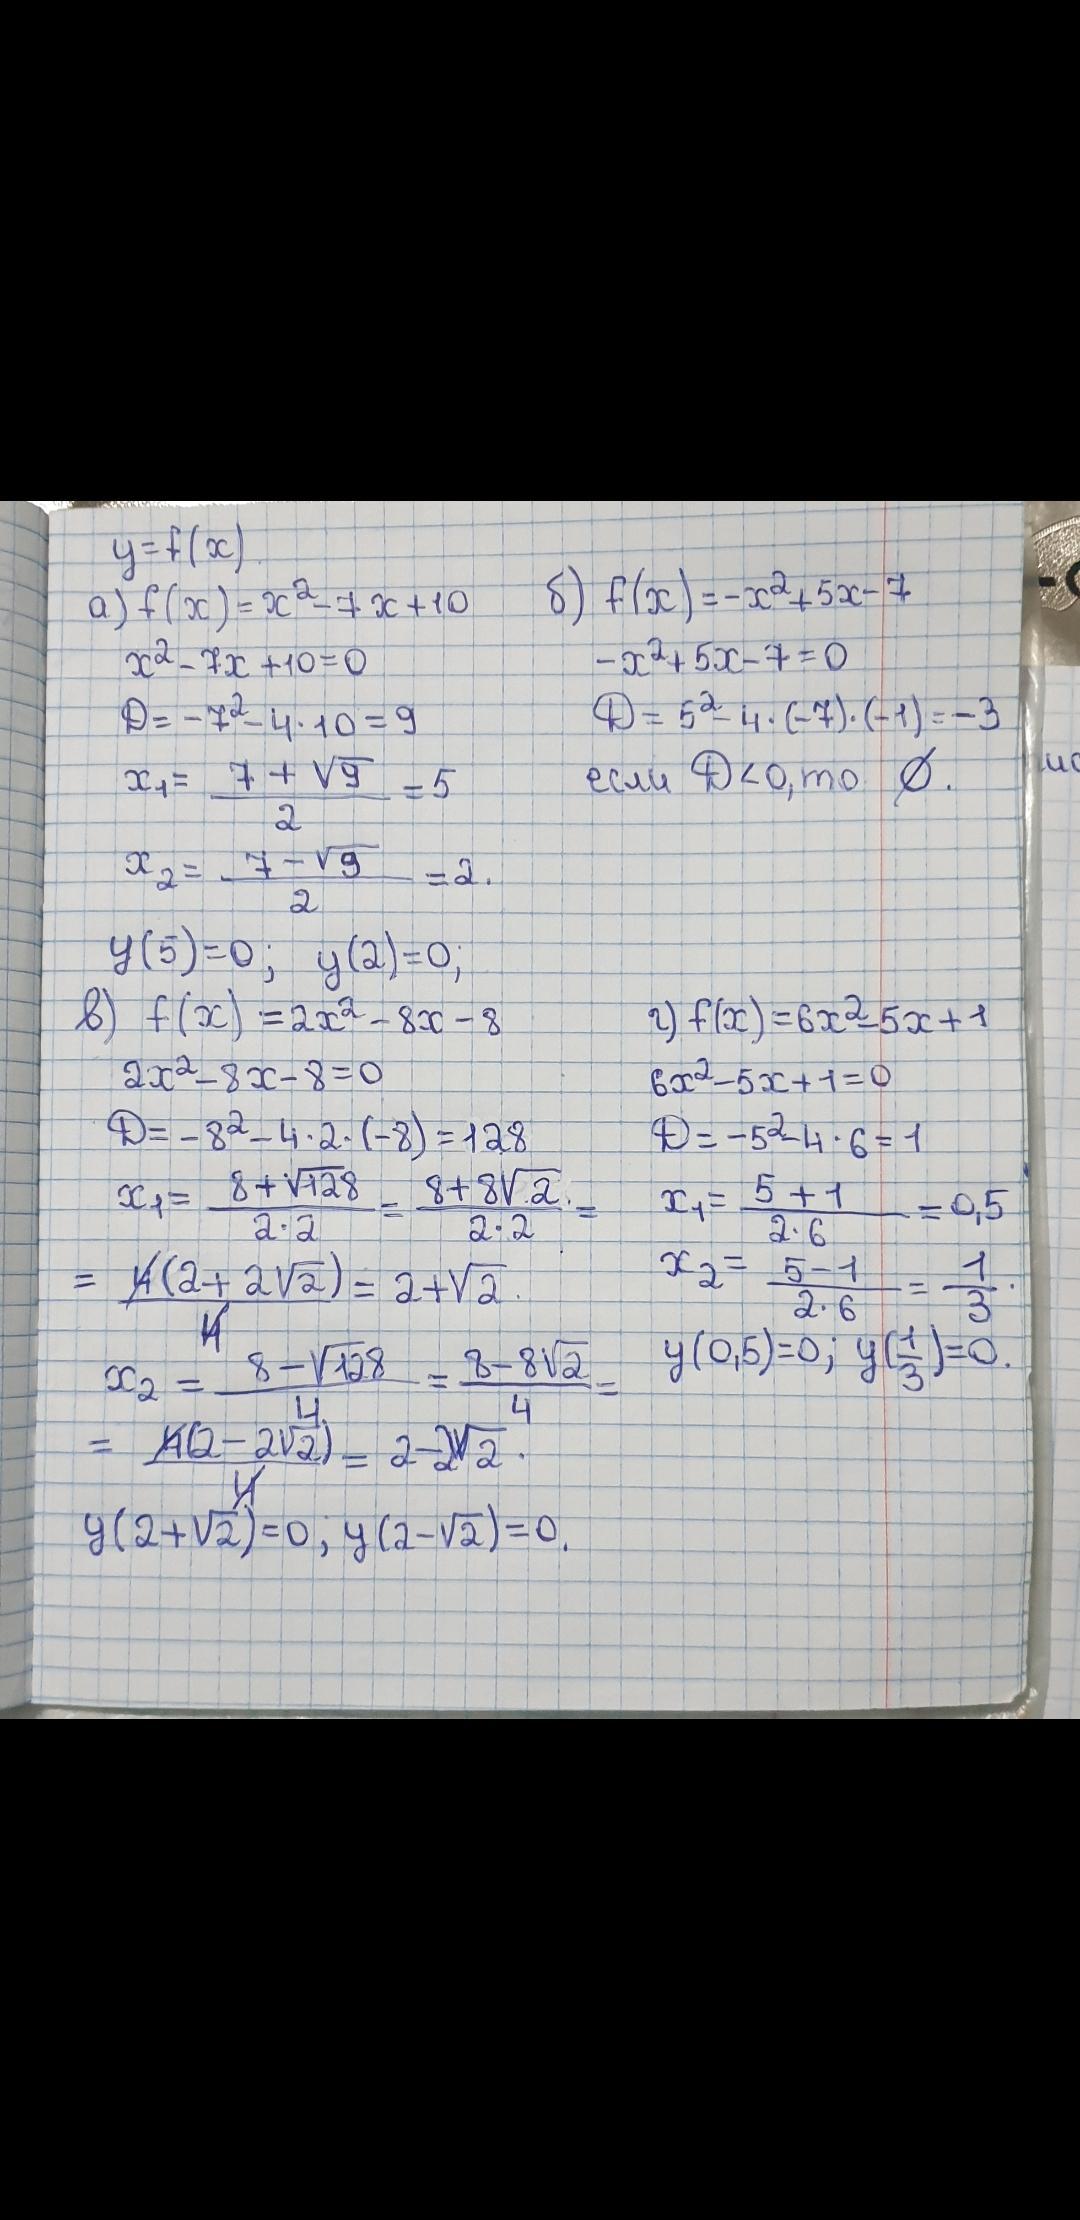 y=f(x)
а) f(x)=x²-7x+10
x²-7x+10=0
D=-7²-4·10=9
x₁= (7+√9)/2 =5
x₂= (7-√9)/2 =2.
y(5)=0; y(2)=0;
б) f(x)=-x²+5x-7
-x²+5x-7=0
D=5²-4·(-7)·(-1)=-3
если D<0, то ∅.
в) f(x)=2x²-8x-8
2x²-8x-8=0
D=-8²-4·2·(-8)=128
x₁= (8+√128)/(2·2) = (8+8√2)/(2·2) =
= 4(2+2√2)/4 = 2+√2.
x₂ = (8-√128)/4 = (8-8√2)/4 =
= 4(2-2√2)/4 = 2-2√2.
y(2+√2)=0; y(2-√2)=0.
г) f(x)=6x²-5x+1
6x²-5x+1=0
D=-5²-4·6=1
x₁= (5+1)/(2·6) =0,5
x₂= (5-1)/(2·6) = 1/3.
y(0,5)=0; y(1/3)=0.